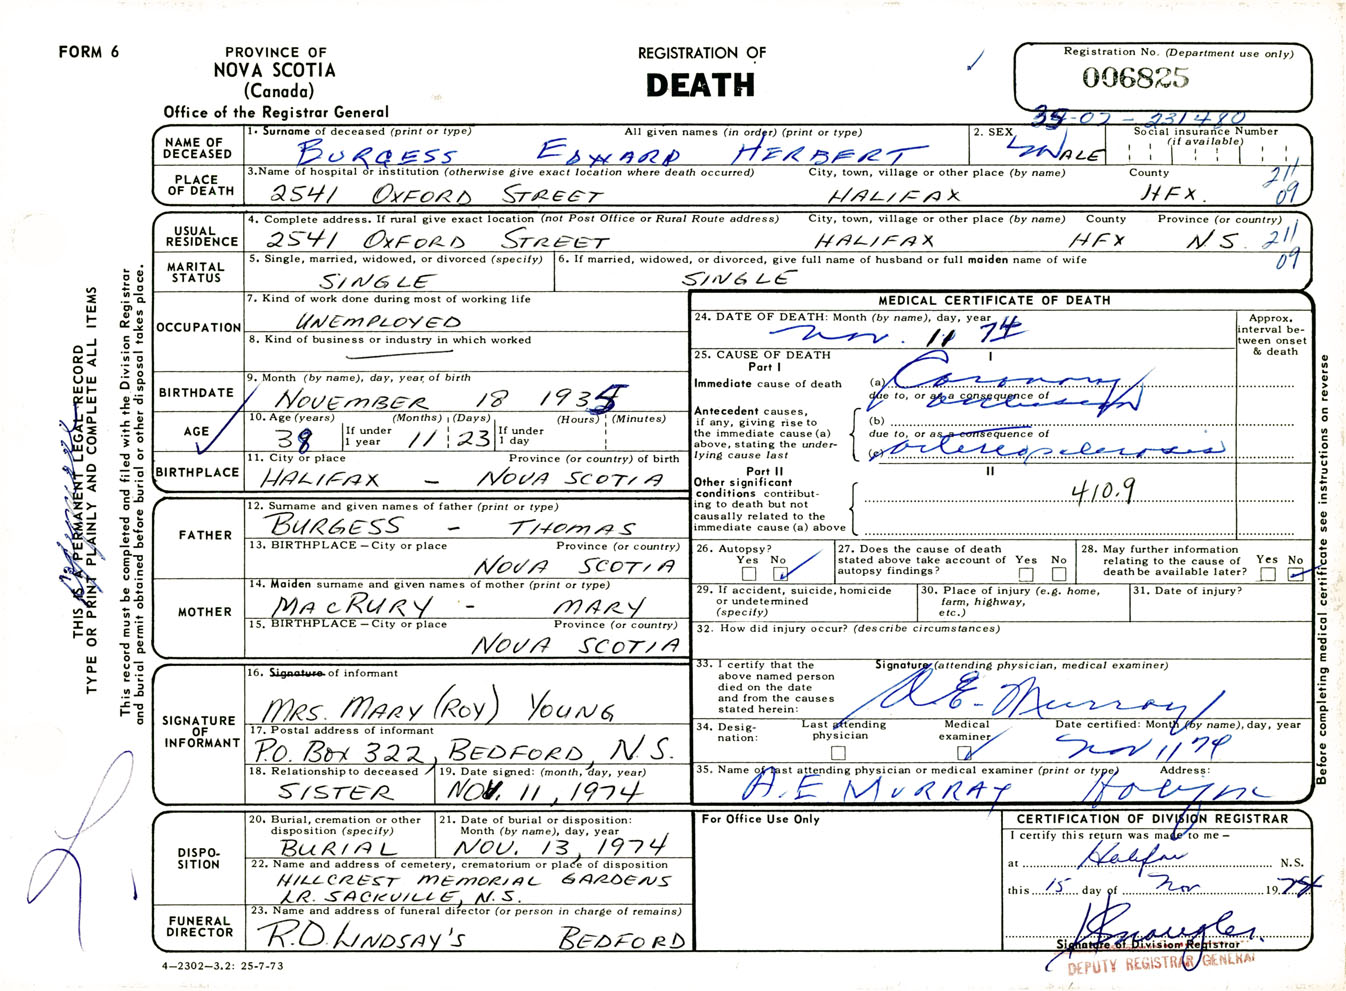 FORM 6
PROVINCE OF
NOVA SCOTIA
(Canada)
Office of the Registrar General
REGISTRATION OF
DEATH
Registration No. (Department use only)
006825
-07-231480
NAME OF DECEASED
1. Surname of deceased (print or type) All given names (in order) (print or type)
BURGESS EDWARD HERBERT
2. SEX
MALE
Social insurance Number
(if available)
PLACE OF DEATH
3. Name of hospital or institution (otherwise give exact location where death occurred) City, town, village or other place (by name) County
2541 OXFORD STREET HALIFAX HFX.
211
09
USUAL RESIDENCE
4. Complete address. If rural give exact location (not Post Office or Rural Route address) City, town, village or other place (by name) County Province (or country)
2541 OXFORD STREET HALIFAX HFX N.S.
211
09
MARITAL STATUS
5. Single, married, widowed, or divorced (specify)
SINGLE
6. If married, widowed, or divorced, give full name of husband or full maiden name of wife
SINGLE
OCCUPATION
7. Kind of work done during most of working life
UNEMPLOYED
8. Kind of business or industry in which worked
BIRTHDATE
9. Month (by name), day, year of birth
NOVEMBER 18 1935
AGE
10. Age (years) (Months) (Days) (Hours) (Minutes)
38 If under 1 year 11 23 If under 1 day
BIRTHPLACE
11. City or place Province (or country) of birth
HALIFAX - NOVA SCOTIA
FATHER
12. Surname and given names of father (print or type)
BURGESS - THOMAS
13. BIRTHPLACE - City or place Province (or country)
NOVA SCOTIA
MOTHER
14. Maiden surname and given names of mother (print or type)
MACRURY - MARY
15. BIRTHPLACE - City or place Province (or country)
NOVA SCOTIA
SIGNATURE OF INFORMANT
16. Signature of informant
MRS. MARY (ROY) YOUNG
17. Postal address of informant
P.O. BOX 322, BEDFORD, N.S.
18. Relationship to deceased
SISTER
19. Date signed: (month, day, year)
NOV. 11, 1974
DISPO-
SITION
20. Burial, cremation or other disposition (specify)
BURIAL
21. Date of burial or disposition: Month (by name), day, year
NOV. 13, 1974
22. Name and address of cemetery, crematorium or place of disposition
HILLCREST MEMORIAL GARDENS
LR. SACKVILLE, N.S.
FUNERAL DIRECTOR
23. Name and address of funeral director (or person in charge of remains)
R.D. LINDSAY'S BEDFORD
4-2302-3.2: 25-7-73
MEDICAL CERTIFICATE OF DEATH
24. DATE OF DEATH: Month (by name), day, year
Nov. 11 74
Approx. interval be-
tween onset & death
25. CAUSE OF DEATH
Part I
I
Immediate cause of death (a) Coronary
due to, or as a consequence of
occlusion
Antecedent causes, if any, giving rise to the immediate cause (a) above, stating the under-
lying cause last
(b)
due to, or as a consequence of
(c) arteriosclerosis
Part II
II
Other significant conditions contribut-
ing to death but not causally related to the immediate cause (a) above
410.9
26. Autopsy?
Yes No
27. Does the cause of death stated above take account of autopsy findings? Yes No
28. May further information relating to the cause of death be available later? Yes No
29. If accident, suicide, homicide or undetermined (specify)
30. Place of injury (e.g. home, farm, highway, etc.)
31. Date of injury?
32. How did injury occur? (describe circumstances)
33. I certify that the above named person died on the date and from the causes stated herein:
Signature (attending physician, medical examiner)
A.E. Murray
34. Desig-
nation:
Last attending physician
Medical examiner
Date certified: Month (by name), day, year
Nov 11 74
35. Name of last attending physician or medical examiner (print or type) Address:
A.E MURRAY
For Office Use Only
CERTIFICATION OF DIVISION REGISTRAR
I certify this return was made to me -
at Halifax N.S.
this 15 day of Nov 1974
Signature of Division Registrar
DEPUTY REGISTRAR GENERAL
THIS IS A PERMANENT LEGAL RECORD
TYPE OR PRINT PLAINLY AND COMPLETE ALL ITEMS
This record must be completed and filed with the Division Registrar
and burial permit obtained before burial or other disposal takes place.
Before completing medical certificate see instructions on reverse